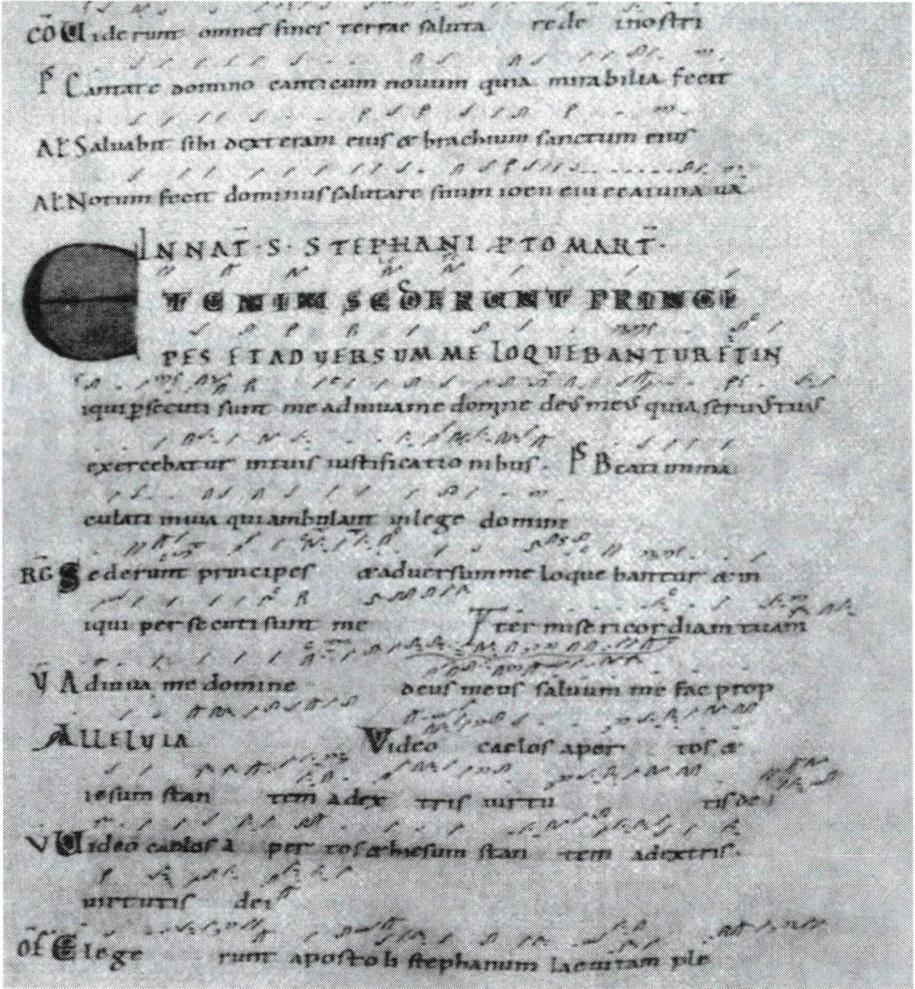 CŌ Uiderunt omnes fines terrae saluta re dei nostri
PS Cantate domino canticum nouum quia mirabilia fecit
Salvabit sibi dexteram eius & brachium sanctum eius
Notum fecit dominus salutare suum
IN NAT̄ · S · STEPHANI PTOMART̄ ·
ETENIM SEDERUNT PRINCI
PES ET ADUERSUM ME LOQUEBANTUR ET IN
iqui psecuti sunt me adiuuame domine deus meus quia seruus tuus
exercebatur intuis iustificatio nibus . PS Beati inma
culati inuia qui ambulant inlege domini
RG Sederunt principes &aduersum me loque bantur & in
iqui per secuti sunt me ter misericordiam tuam
V Adiuua me domine deus meus saluum me fac prop
ALLELUIA Video caelos aper tos &
iesum stan tem adex tris uirtu tis dei
V Uideo caelos a per tos &hiesum stan tem adextris .
uirtutis dei
OF Elege runt apostoli stephanum laeuitam ple